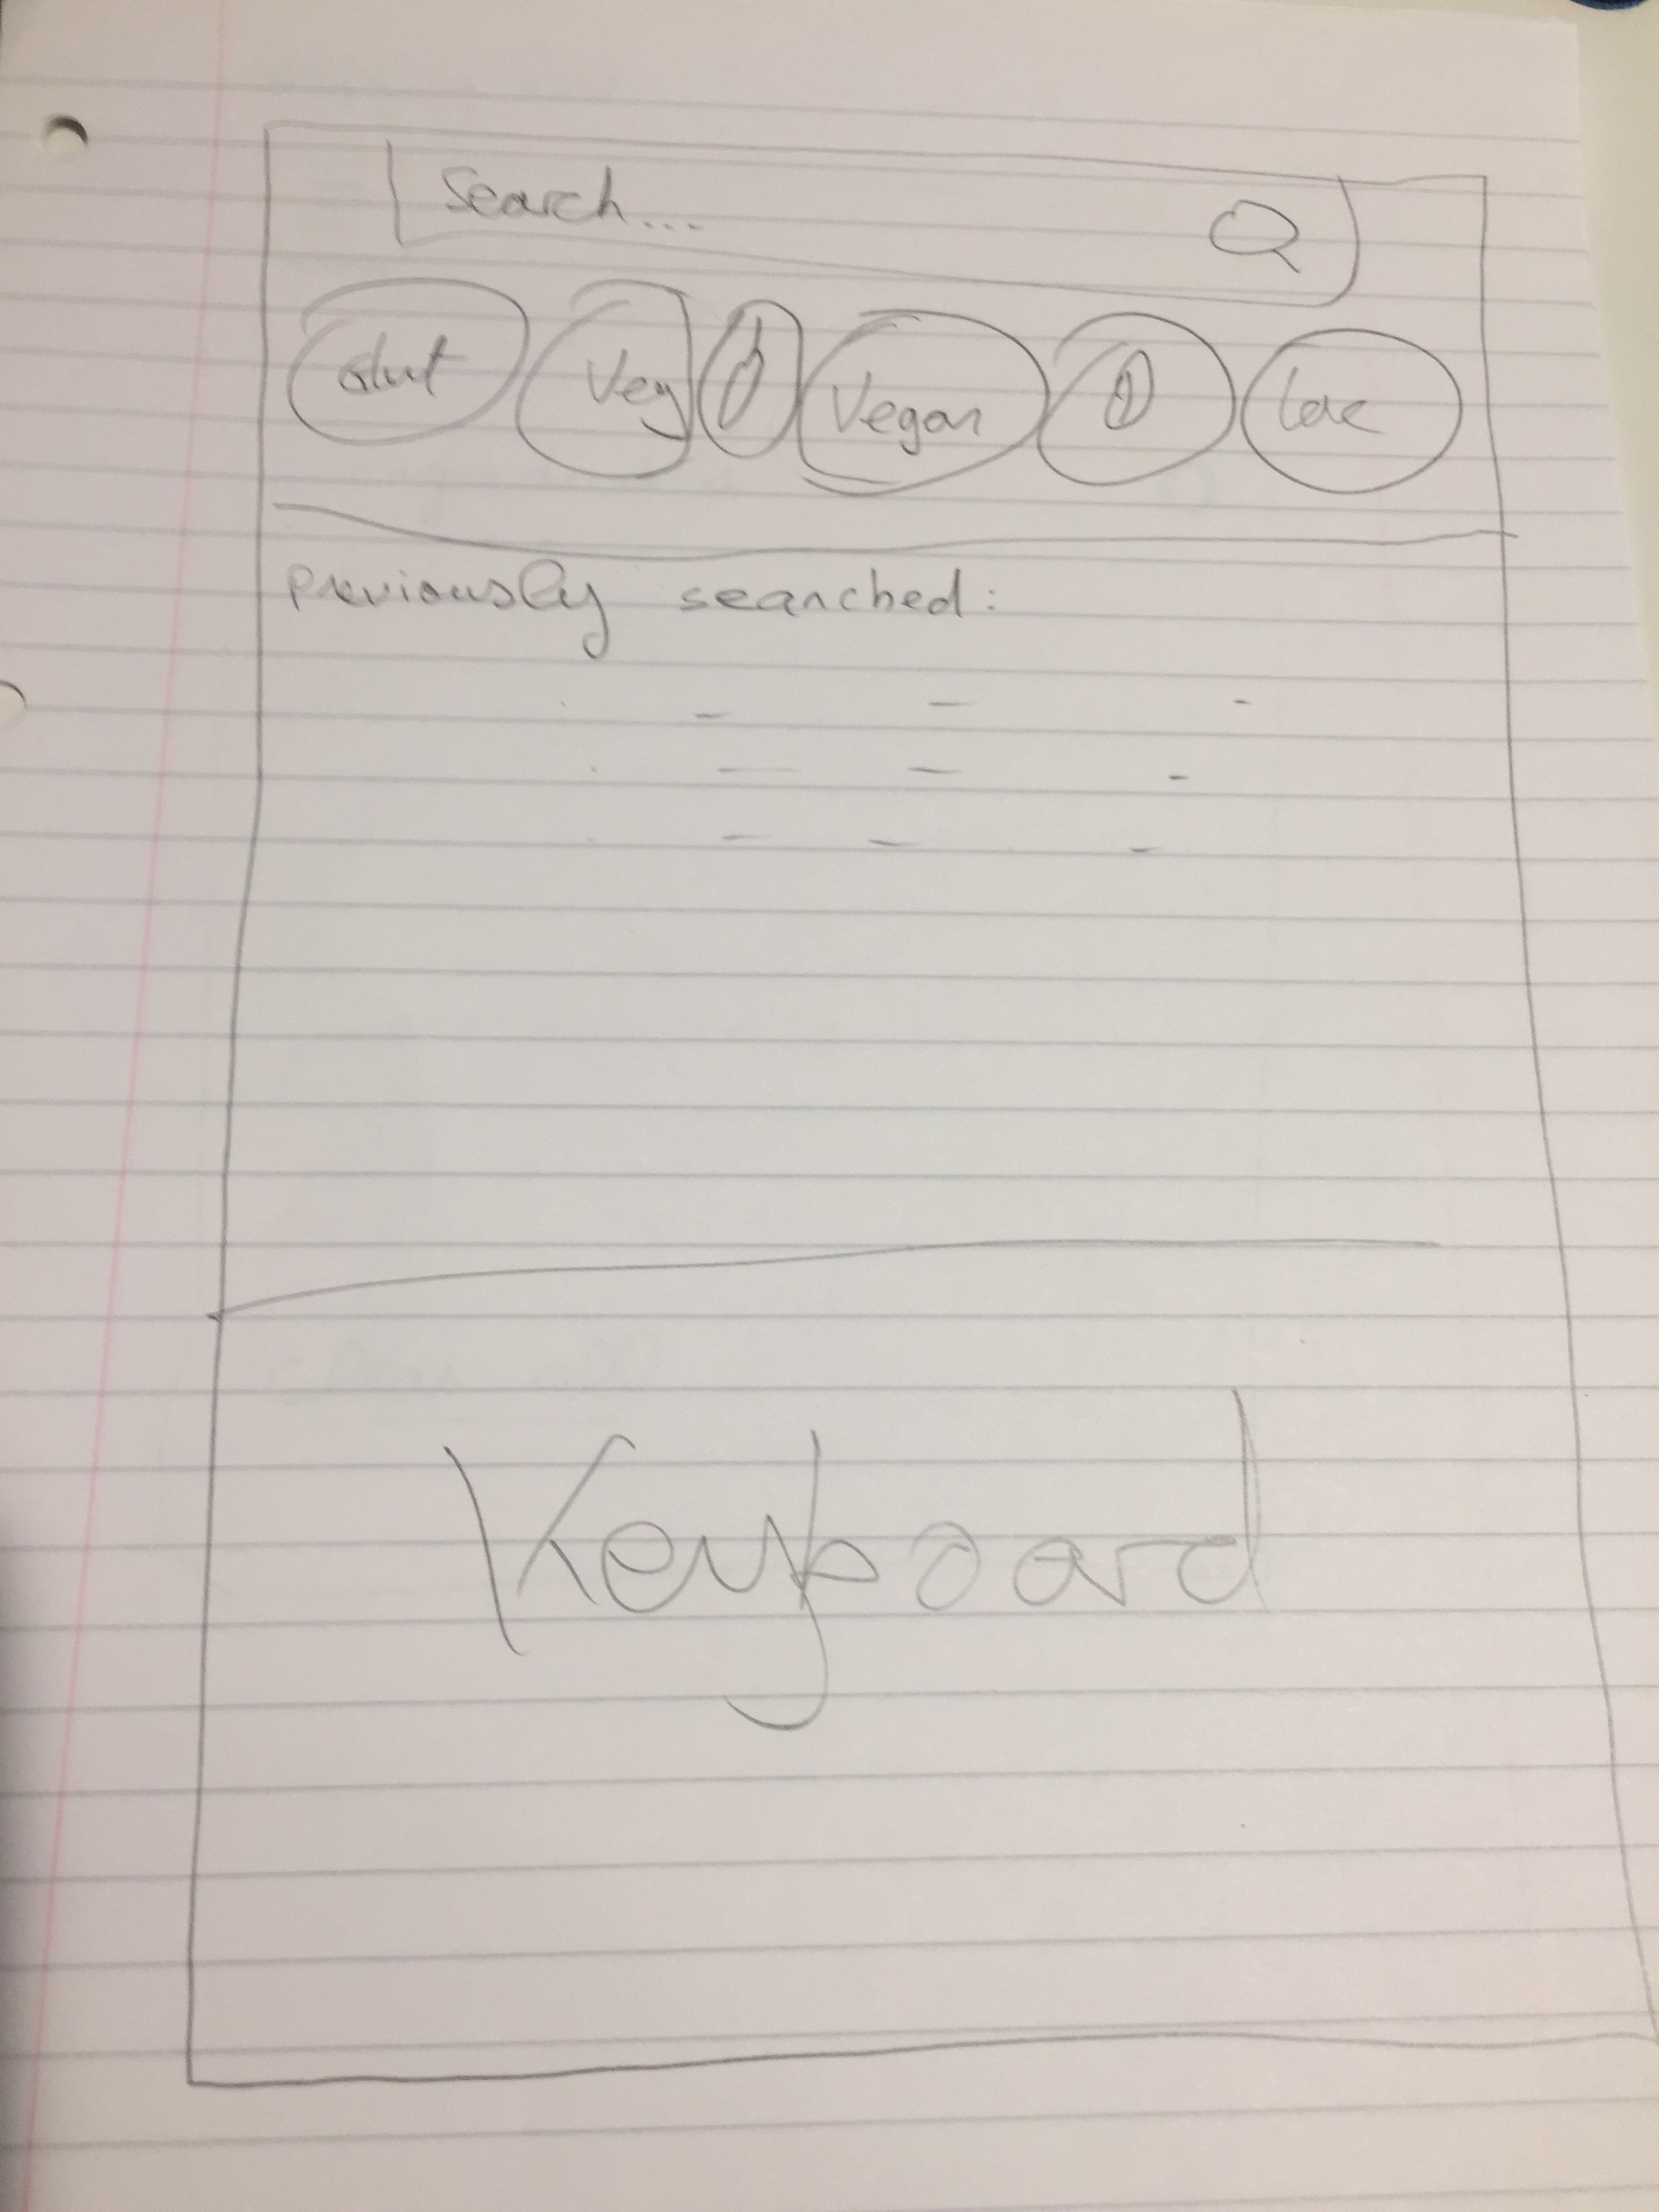 Search...
Glut Veg Vegan Lac
Previously searched:
Keyboard